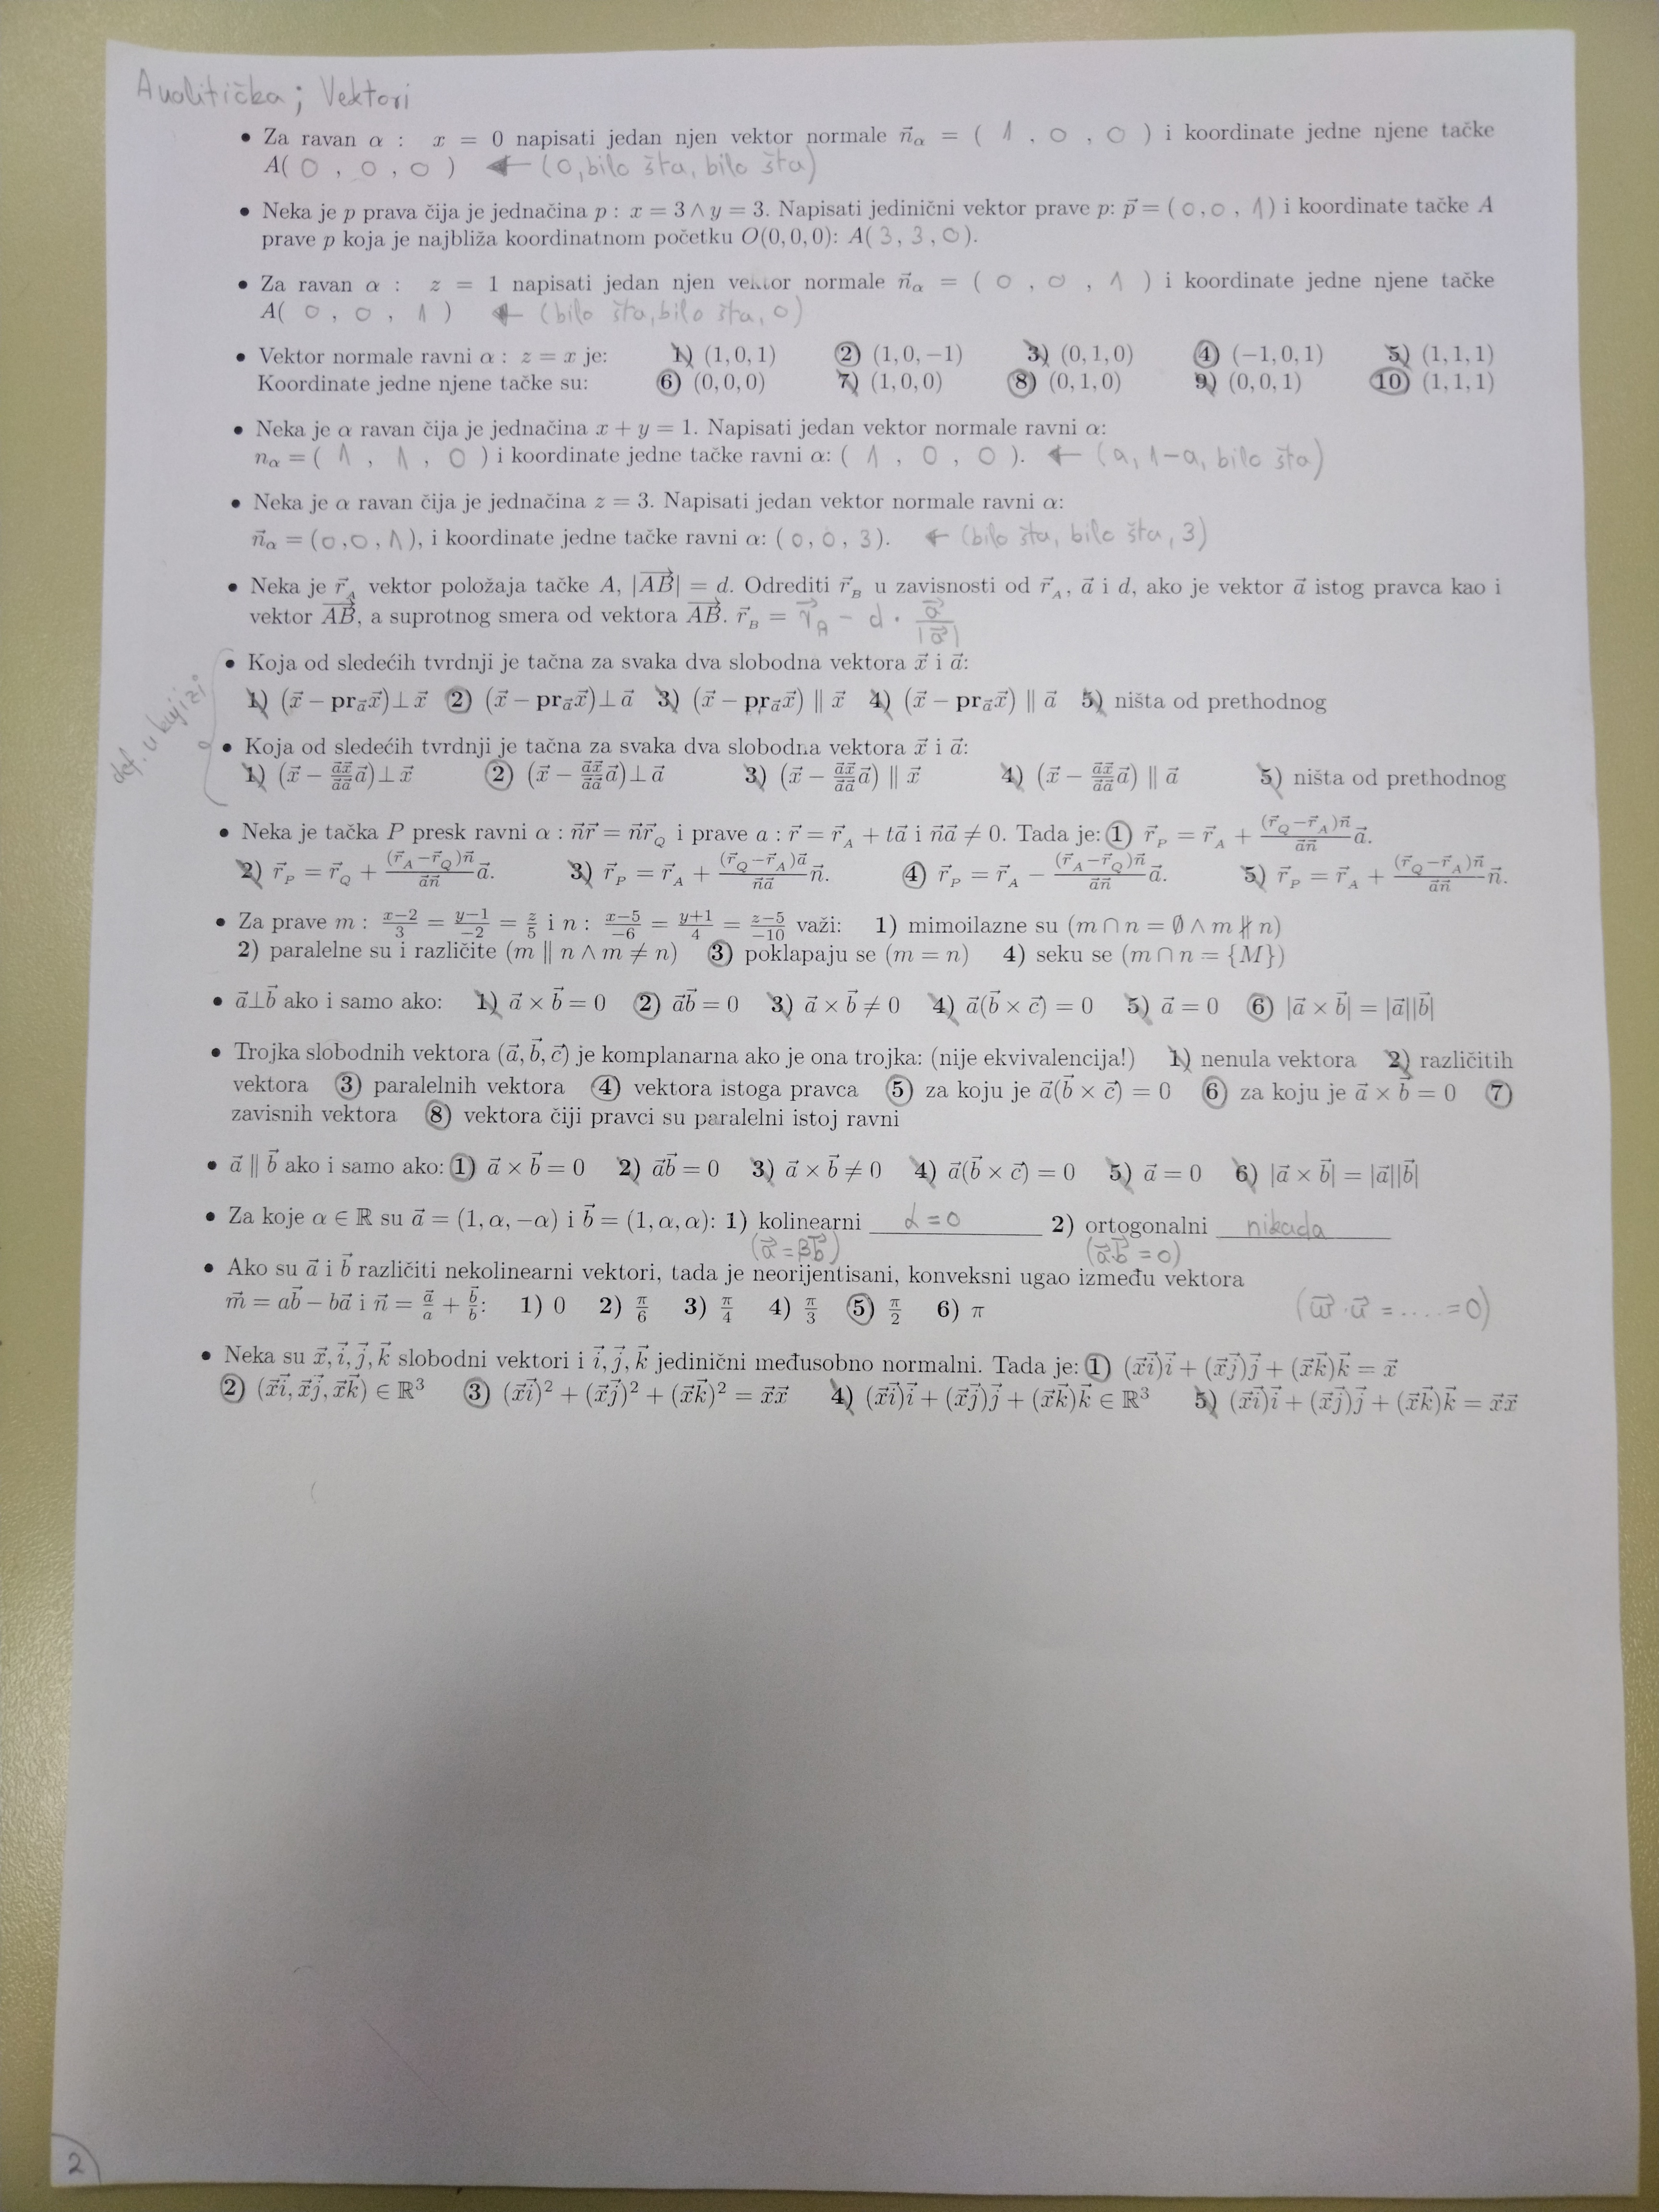 Analitička; Vektori
• Za ravan α : x = 0 napisati jedan njen vektor normale n⃗_α = ( 1 , 0 , 0 ) i koordinate jedne njene tačke
A( 0 , 0 , 0 ) ← (0, bilo šta, bilo šta)
• Neka je p prava čija je jednačina p : x = 3 ∧ y = 3. Napisati jedinični vektor prave p: p⃗ = ( 0 , 0 , 1 ) i koordinate tačke A
prave p koja je najbliža koordinatnom početku O(0, 0, 0): A( 3 , 3 , 0 ).
• Za ravan α : z = 1 napisati jedan njen vektor normale n⃗_α = ( 0 , 0 , 1 ) i koordinate jedne njene tačke
A( 0 , 0 , 1 ) ← (bilo šta, bilo šta, 0)
• Vektor normale ravni α : z = x je: 1) (1, 0, 1) 2) (1, 0, −1) 3) (0, 1, 0) 4) (−1, 0, 1) 5) (1, 1, 1)
Koordinate jedne njene tačke su: 6) (0, 0, 0) 7) (1, 0, 0) 8) (0, 1, 0) 9) (0, 0, 1) 10) (1, 1, 1)
• Neka je α ravan čija je jednačina x + y = 1. Napisati jedan vektor normale ravni α:
n_α = ( 1 , 1 , 0 ) i koordinate jedne tačke ravni α: ( 1 , 0 , 0 ). ← (a, 1−a, bilo šta)
• Neka je α ravan čija je jednačina z = 3. Napisati jedan vektor normale ravni α:
n⃗_α = ( 0 , 0 , 1 ), i koordinate jedne tačke ravni α: ( 0 , 0 , 3 ). ← (bilo šta, bilo šta, 3)
• Neka je r⃗_A vektor položaja tačke A, |AB⃗| = d. Odrediti r⃗_B u zavisnosti od r⃗_A, a⃗ i d, ako je vektor a⃗ istog pravca kao i
vektor AB⃗, a suprotnog smera od vektora AB⃗. r⃗_B = r⃗_A − d · a⃗/|a⃗|
def. u knjizi
• Koja od sledećih tvrdnji je tačna za svaka dva slobodna vektora x⃗ i a⃗:
1) (x⃗ − pr_a⃗ x⃗)⊥x⃗ 2) (x⃗ − pr_a⃗ x⃗)⊥a⃗ 3) (x⃗ − pr_a⃗ x⃗) ∥ x⃗ 4) (x⃗ − pr_a⃗ x⃗) ∥ a⃗ 5) ništa od prethodnog
• Koja od sledećih tvrdnji je tačna za svaka dva slobodna vektora x⃗ i a⃗:
1) (x⃗ − (a⃗x⃗/a⃗a⃗)a⃗)⊥x⃗ 2) (x⃗ − (a⃗x⃗/a⃗a⃗)a⃗)⊥a⃗ 3) (x⃗ − (a⃗x⃗/a⃗a⃗)a⃗) ∥ x⃗ 4) (x⃗ − (a⃗x⃗/a⃗a⃗)a⃗) ∥ a⃗ 5) ništa od prethodnog
• Neka je tačka P presk ravni α : n⃗r⃗ = n⃗r⃗_Q i prave a : r⃗ = r⃗_A + ta⃗ i n⃗a⃗ ≠ 0. Tada je: 1) r⃗_P = r⃗_A + ((r⃗_Q−r⃗_A)n⃗/a⃗n⃗)a⃗.
2) r⃗_P = r⃗_Q + ((r⃗_A−r⃗_Q)n⃗/a⃗n⃗)a⃗. 3) r⃗_P = r⃗_A + ((r⃗_Q−r⃗_A)a⃗/n⃗a⃗)n⃗. 4) r⃗_P = r⃗_A − ((r⃗_A−r⃗_Q)n⃗/a⃗n⃗)a⃗. 5) r⃗_P = r⃗_A + ((r⃗_Q−r⃗_A)n⃗/a⃗n⃗)n⃗.
• Za prave m : (x−2)/3 = (y−1)/−2 = z/5 i n : (x−5)/−6 = (y+1)/4 = (z−5)/−10 važi: 1) mimoilazne su (m ∩ n = ∅ ∧ m ∦ n)
2) paralelne su i različite (m ∥ n ∧ m ≠ n) 3) poklapaju se (m = n) 4) seku se (m ∩ n = {M})
• a⃗⊥b⃗ ako i samo ako: 1) a⃗ × b⃗ = 0 2) a⃗b⃗ = 0 3) a⃗ × b⃗ ≠ 0 4) a⃗(b⃗ × c⃗) = 0 5) a⃗ = 0 6) |a⃗ × b⃗| = |a⃗||b⃗|
• Trojka slobodnih vektora (a⃗, b⃗, c⃗) je komplanarna ako je ona trojka: (nije ekvivalencija!) 1) nenula vektora 2) različitih
vektora 3) paralelnih vektora 4) vektora istoga pravca 5) za koju je a⃗(b⃗ × c⃗) = 0 6) za koju je a⃗ × b⃗ = 0 7)
zavisnih vektora 8) vektora čiji pravci su paralelni istoj ravni
• a⃗ ∥ b⃗ ako i samo ako: 1) a⃗ × b⃗ = 0 2) a⃗b⃗ = 0 3) a⃗ × b⃗ ≠ 0 4) a⃗(b⃗ × c⃗) = 0 5) a⃗ = 0 6) |a⃗ × b⃗| = |a⃗||b⃗|
• Za koje α ∈ ℝ su a⃗ = (1, α, −α) i b⃗ = (1, α, α): 1) kolinearni α = 0 2) ortogonalni nikada
(a⃗ = βb⃗) (a⃗·b⃗ = 0)
• Ako su a⃗ i b⃗ različiti nekolinearni vektori, tada je neorijentisani, konveksni ugao između vektora
m⃗ = ab⃗ − ba⃗ i n⃗ = a⃗/a + b⃗/b: 1) 0 2) π/6 3) π/4 4) π/3 5) π/2 6) π (w⃗·u⃗ = .... = 0)
• Neka su x⃗, i⃗, j⃗, k⃗ slobodni vektori i i⃗, j⃗, k⃗ jedinični međusobno normalni. Tada je: 1) (x⃗i⃗)i⃗ + (x⃗j⃗)j⃗ + (x⃗k⃗)k⃗ = x⃗
2) (x⃗i⃗, x⃗j⃗, x⃗k⃗) ∈ ℝ³ 3) (x⃗i⃗)² + (x⃗j⃗)² + (x⃗k⃗)² = x⃗x⃗ 4) (x⃗i⃗)i⃗ + (x⃗j⃗)j⃗ + (x⃗k⃗)k⃗ ∈ ℝ³ 5) (x⃗i⃗)i⃗ + (x⃗j⃗)j⃗ + (x⃗k⃗)k⃗ = x⃗x⃗
2